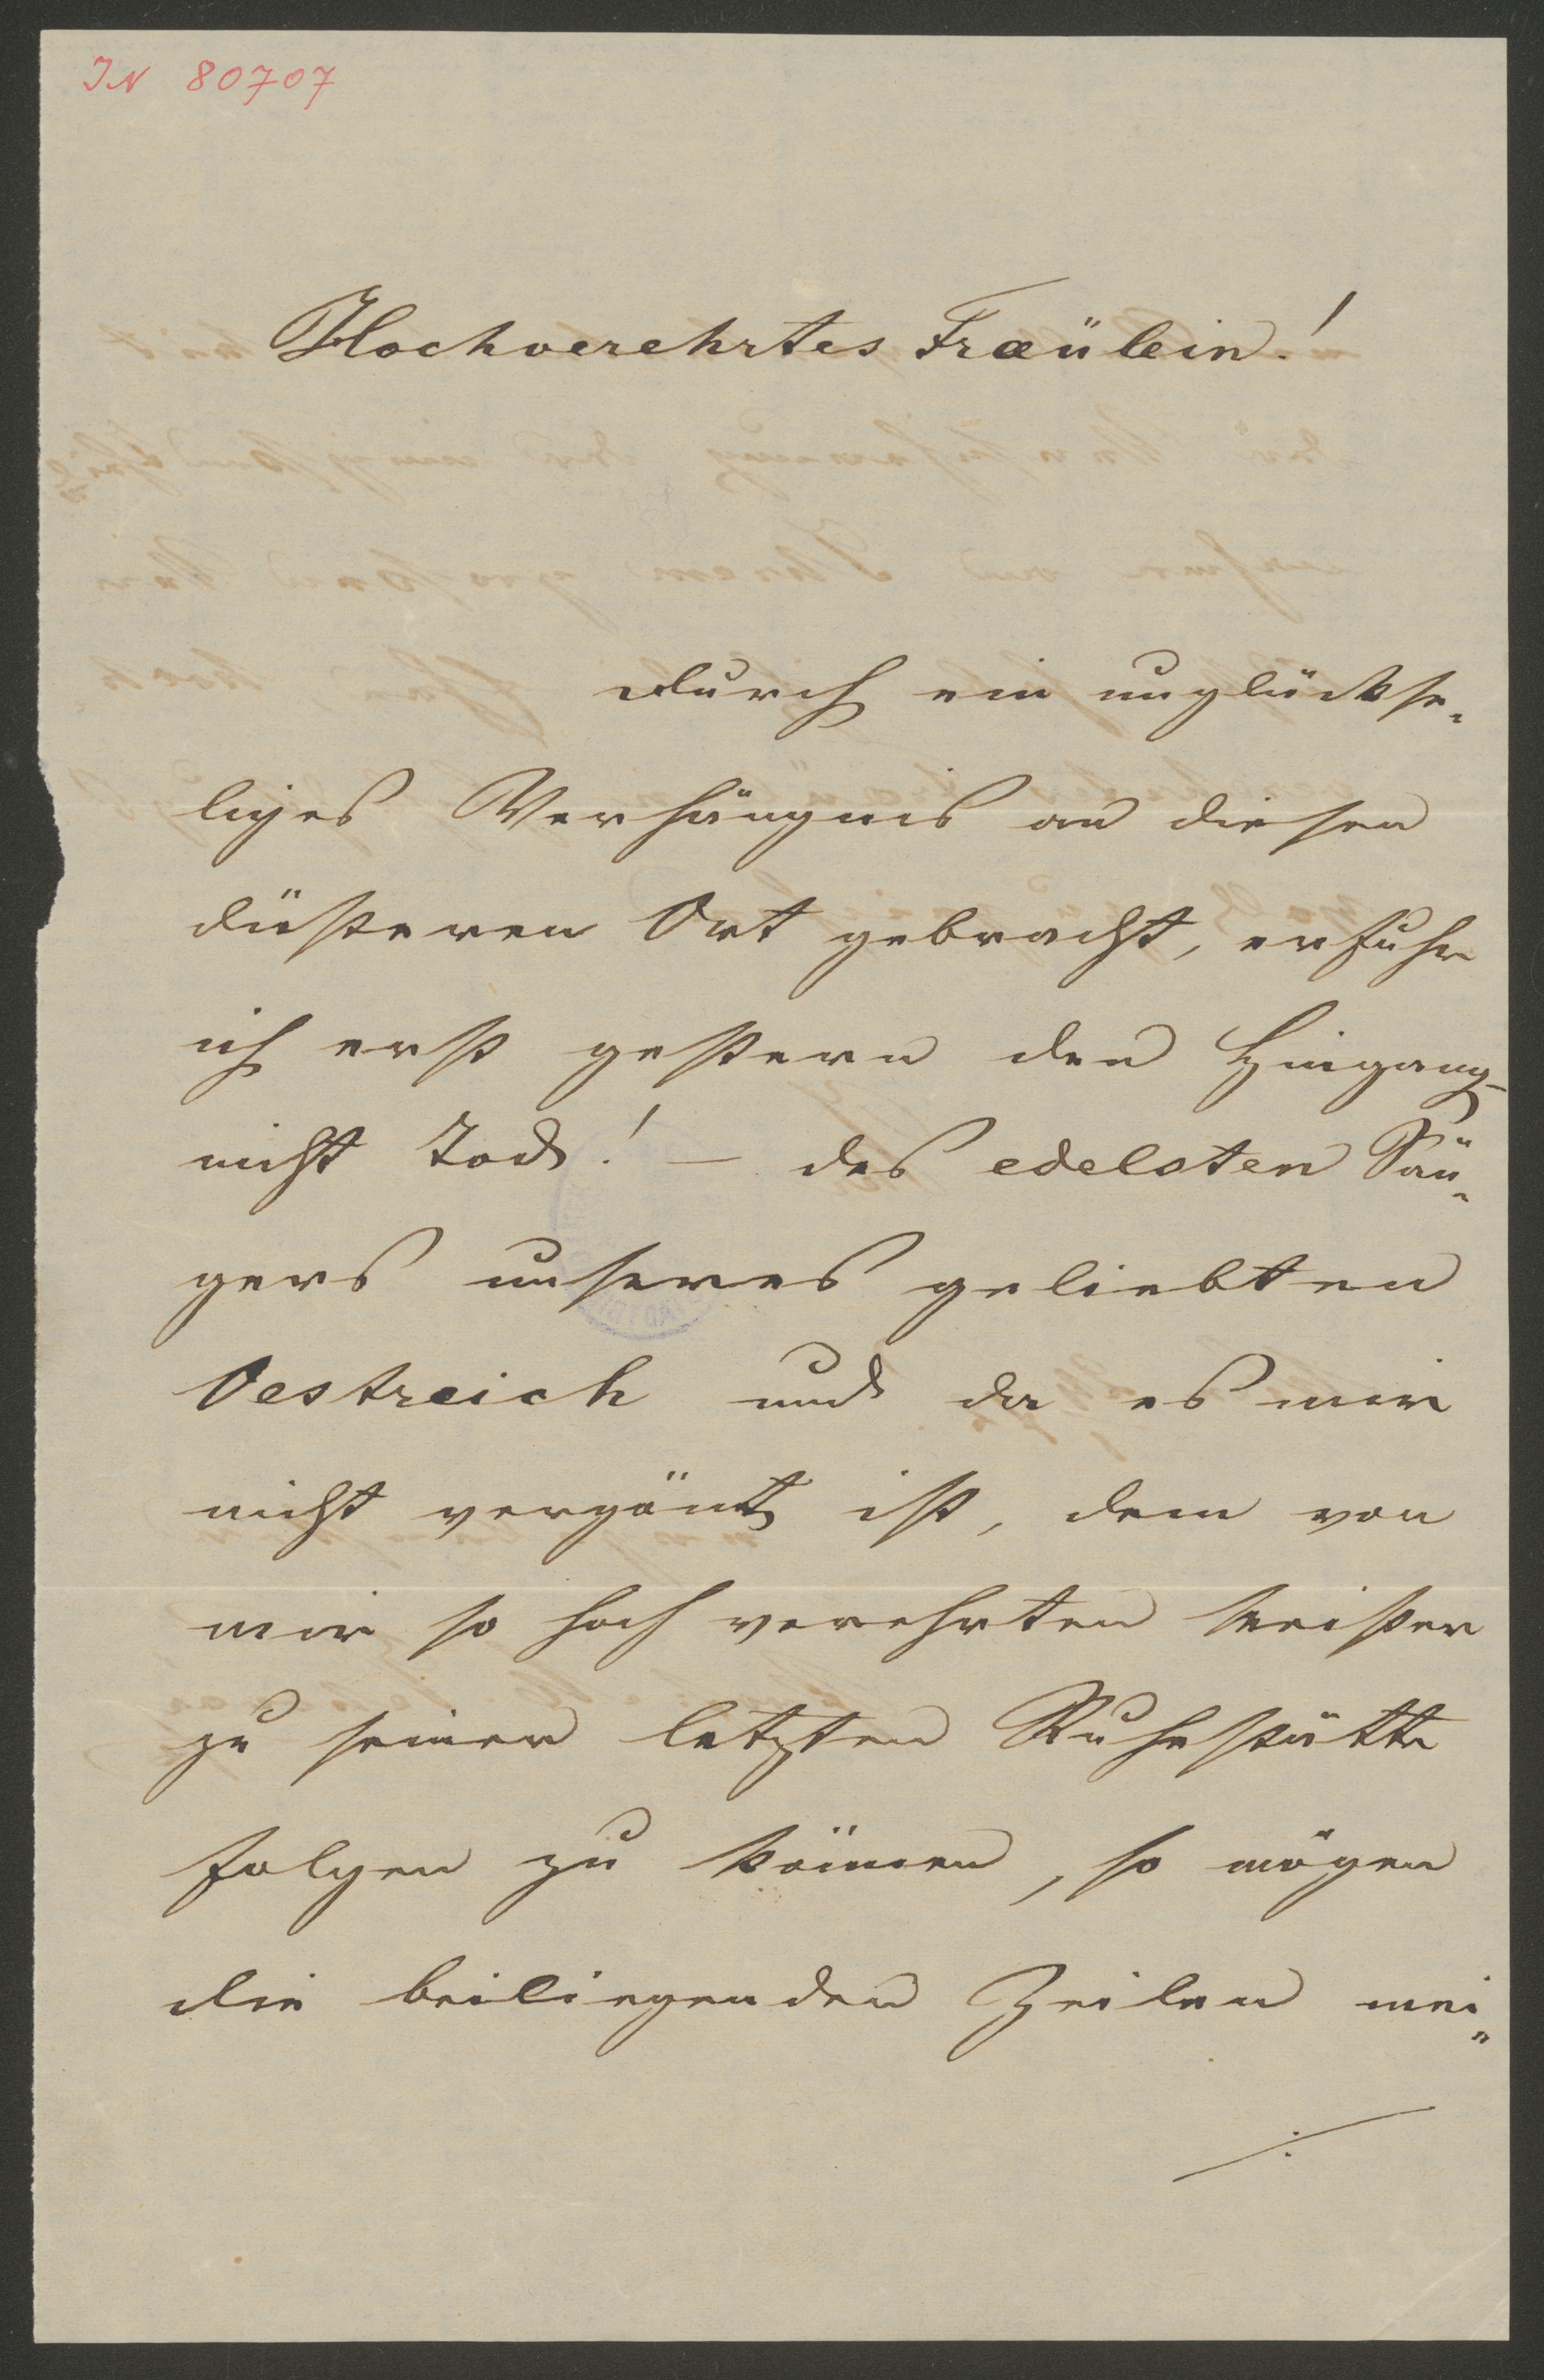 IN 80707
Hochverehrtes Fraülein!
durch ein unglückse-
liges Verhängnis an diesen
düsteren Ort gebracht, erfuhr
ich erst gestern den Hingang –
nicht Tod! – des edelsten Sän-
gers unseres geliebten
Oestreich und da es mir
nicht vergönt ist, dem von
mir so hoch verehrten Meister
zu seiner letzten Ruhestätte
folgen zu können, so mögen
die beiliegenden Zeilen mei-
./.